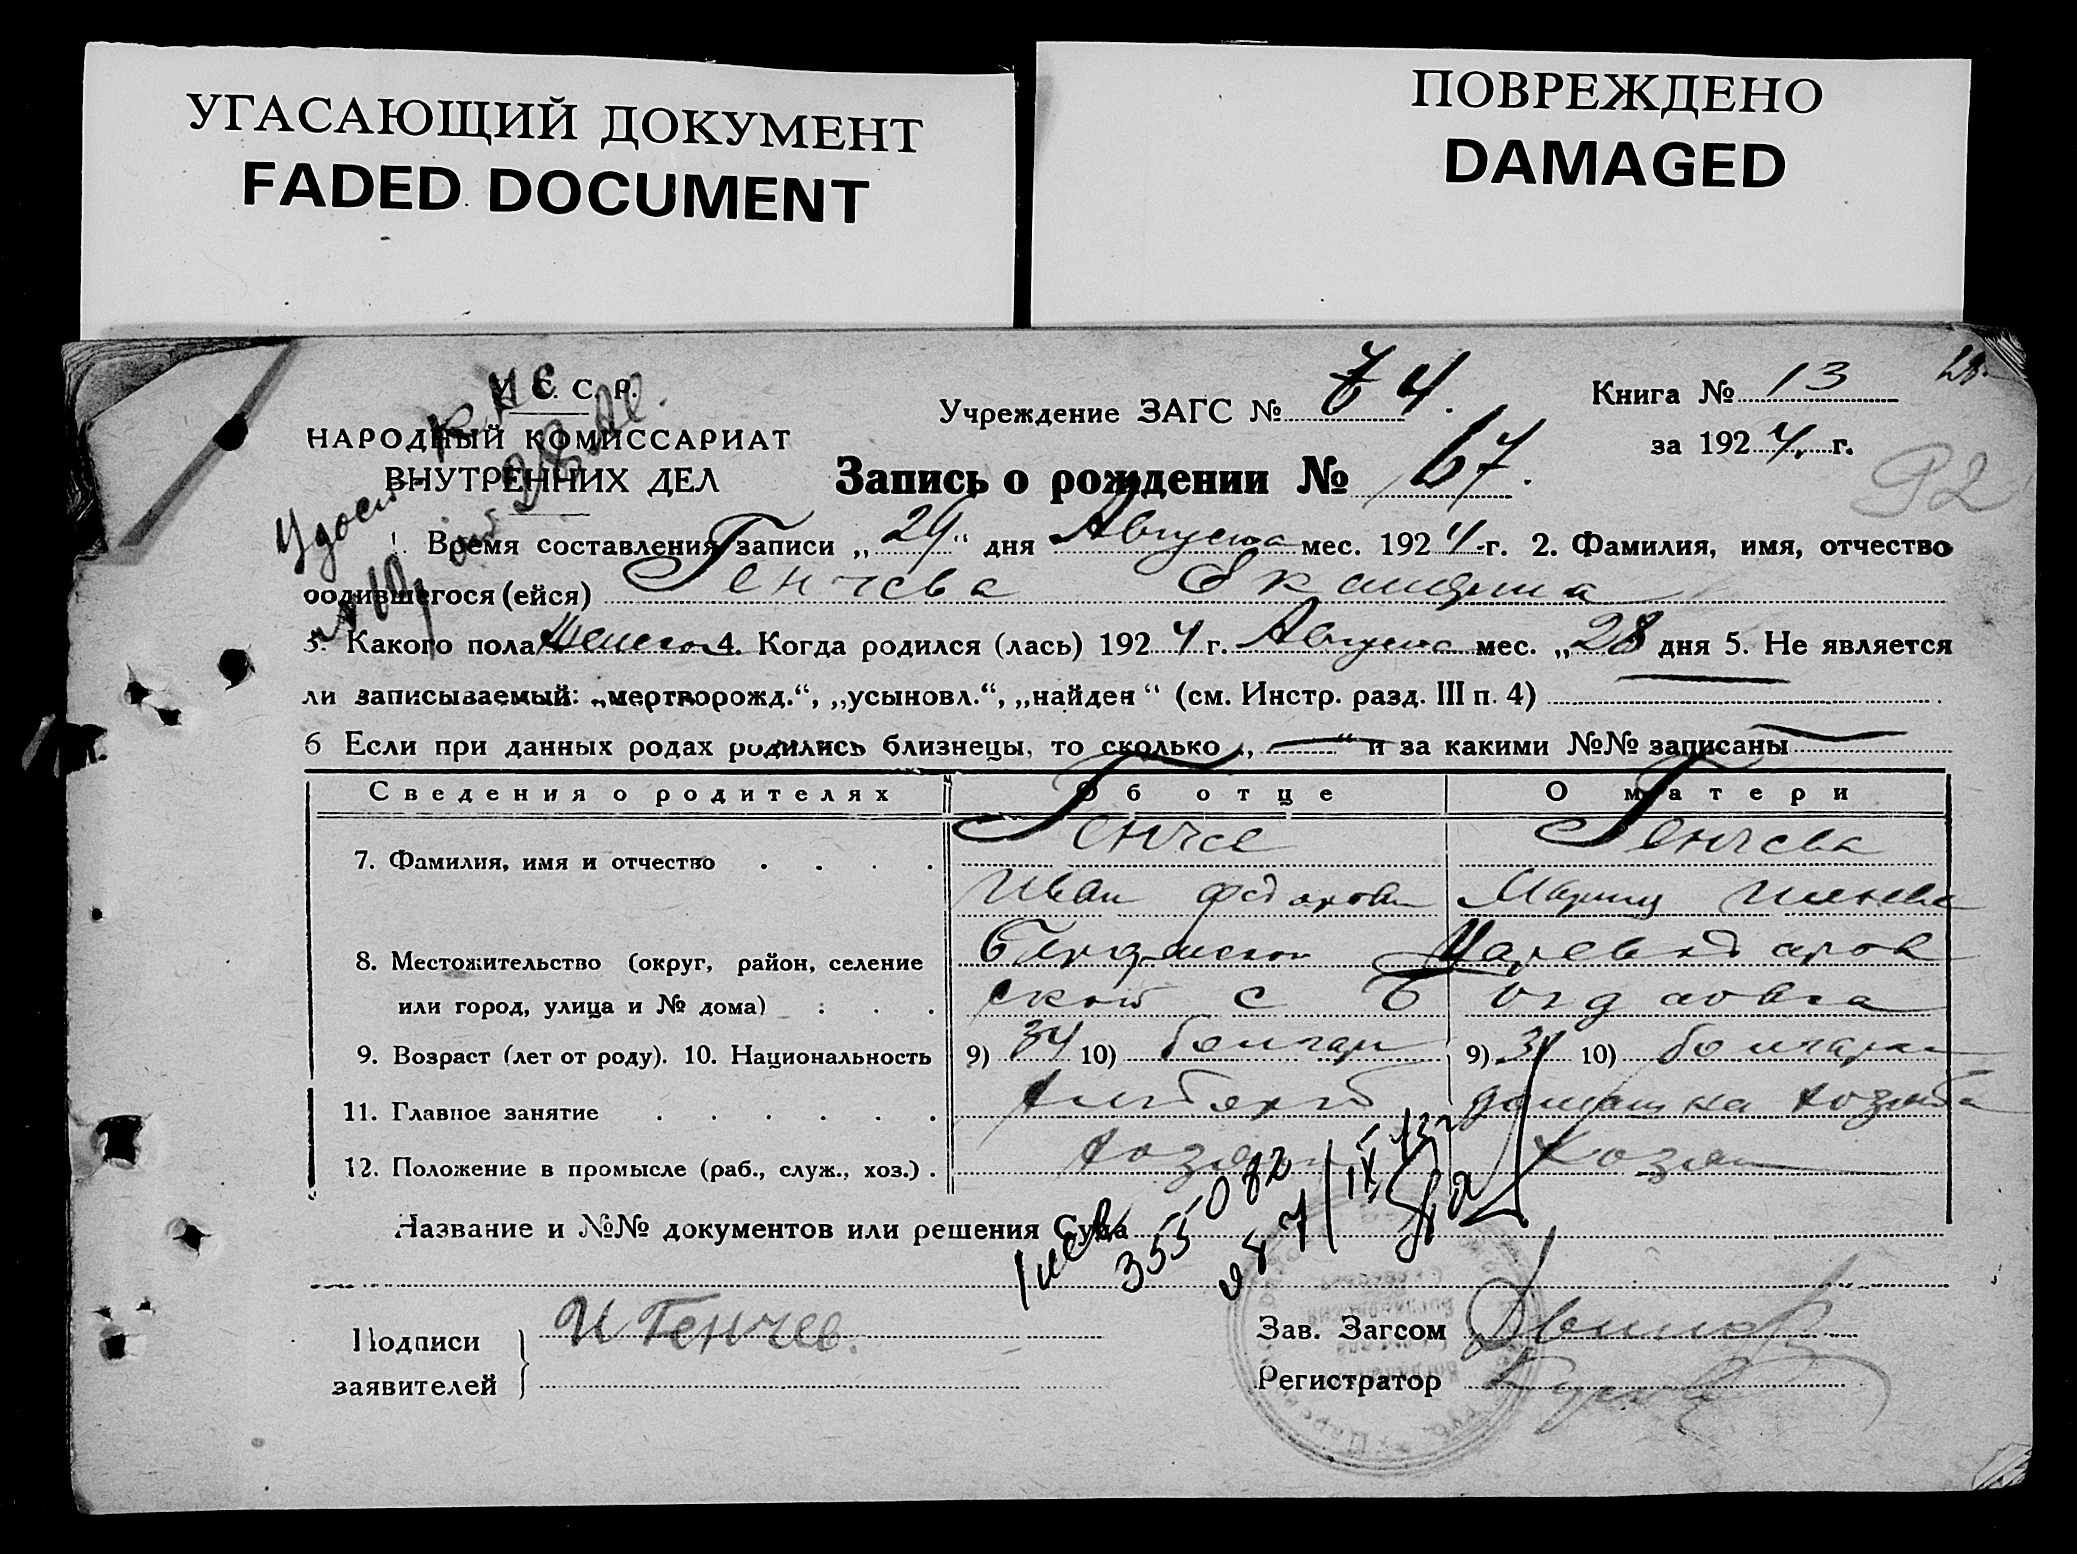 УГАСАЮЩИЙ ДОКУМЕНТ
FADED DOCUMENT
ПОВРЕЖДЕНО
DAMAGED
У. С. С. Р.
НАРОДНЫЙ КОМИССАРИАТ
ВНУТРЕННИХ ДЕЛ
Учреждение ЗАГС № 74.
Книга № 13
за 1924 г.
92
Запись о рождении № 67.
1. Время составления записи „29“ дня Августа мес. 1924 г. 2. Фамилия, имя, отчество
родившегося (ейся) Генчева Екатерина
3. Какого пола Женского 4. Когда родился (лась) 1924 г. Августа мес. „28 дня 5. Не является
ли записываемый: „мертворожд.“, „усыновл.“, „найден“ (см. Инстр. разд. III п. 4)
6 Если при данных родах родились близнецы, то сколько „ — “ и за какими №№ записаны —
Сведения о родителях Об отце О матери
7. Фамилия, имя и отчество Генчев Генчева
Иван Федоров
8. Местожительство (округ, район, селение
или город, улица и № дома) ской с Богдановка
9. Возраст (лет от роду). 10. Национальность 9) 34 10) болгар 9) 10) болгарка
11. Главное занятие хлебороб домашна
12. Положение в промысле (раб., служ., хоз.) хозяин
Название и №№ документов или решения Суда
355082
Подписи
заявителей
И Генчев.
Зав. Загсом
Регистратор